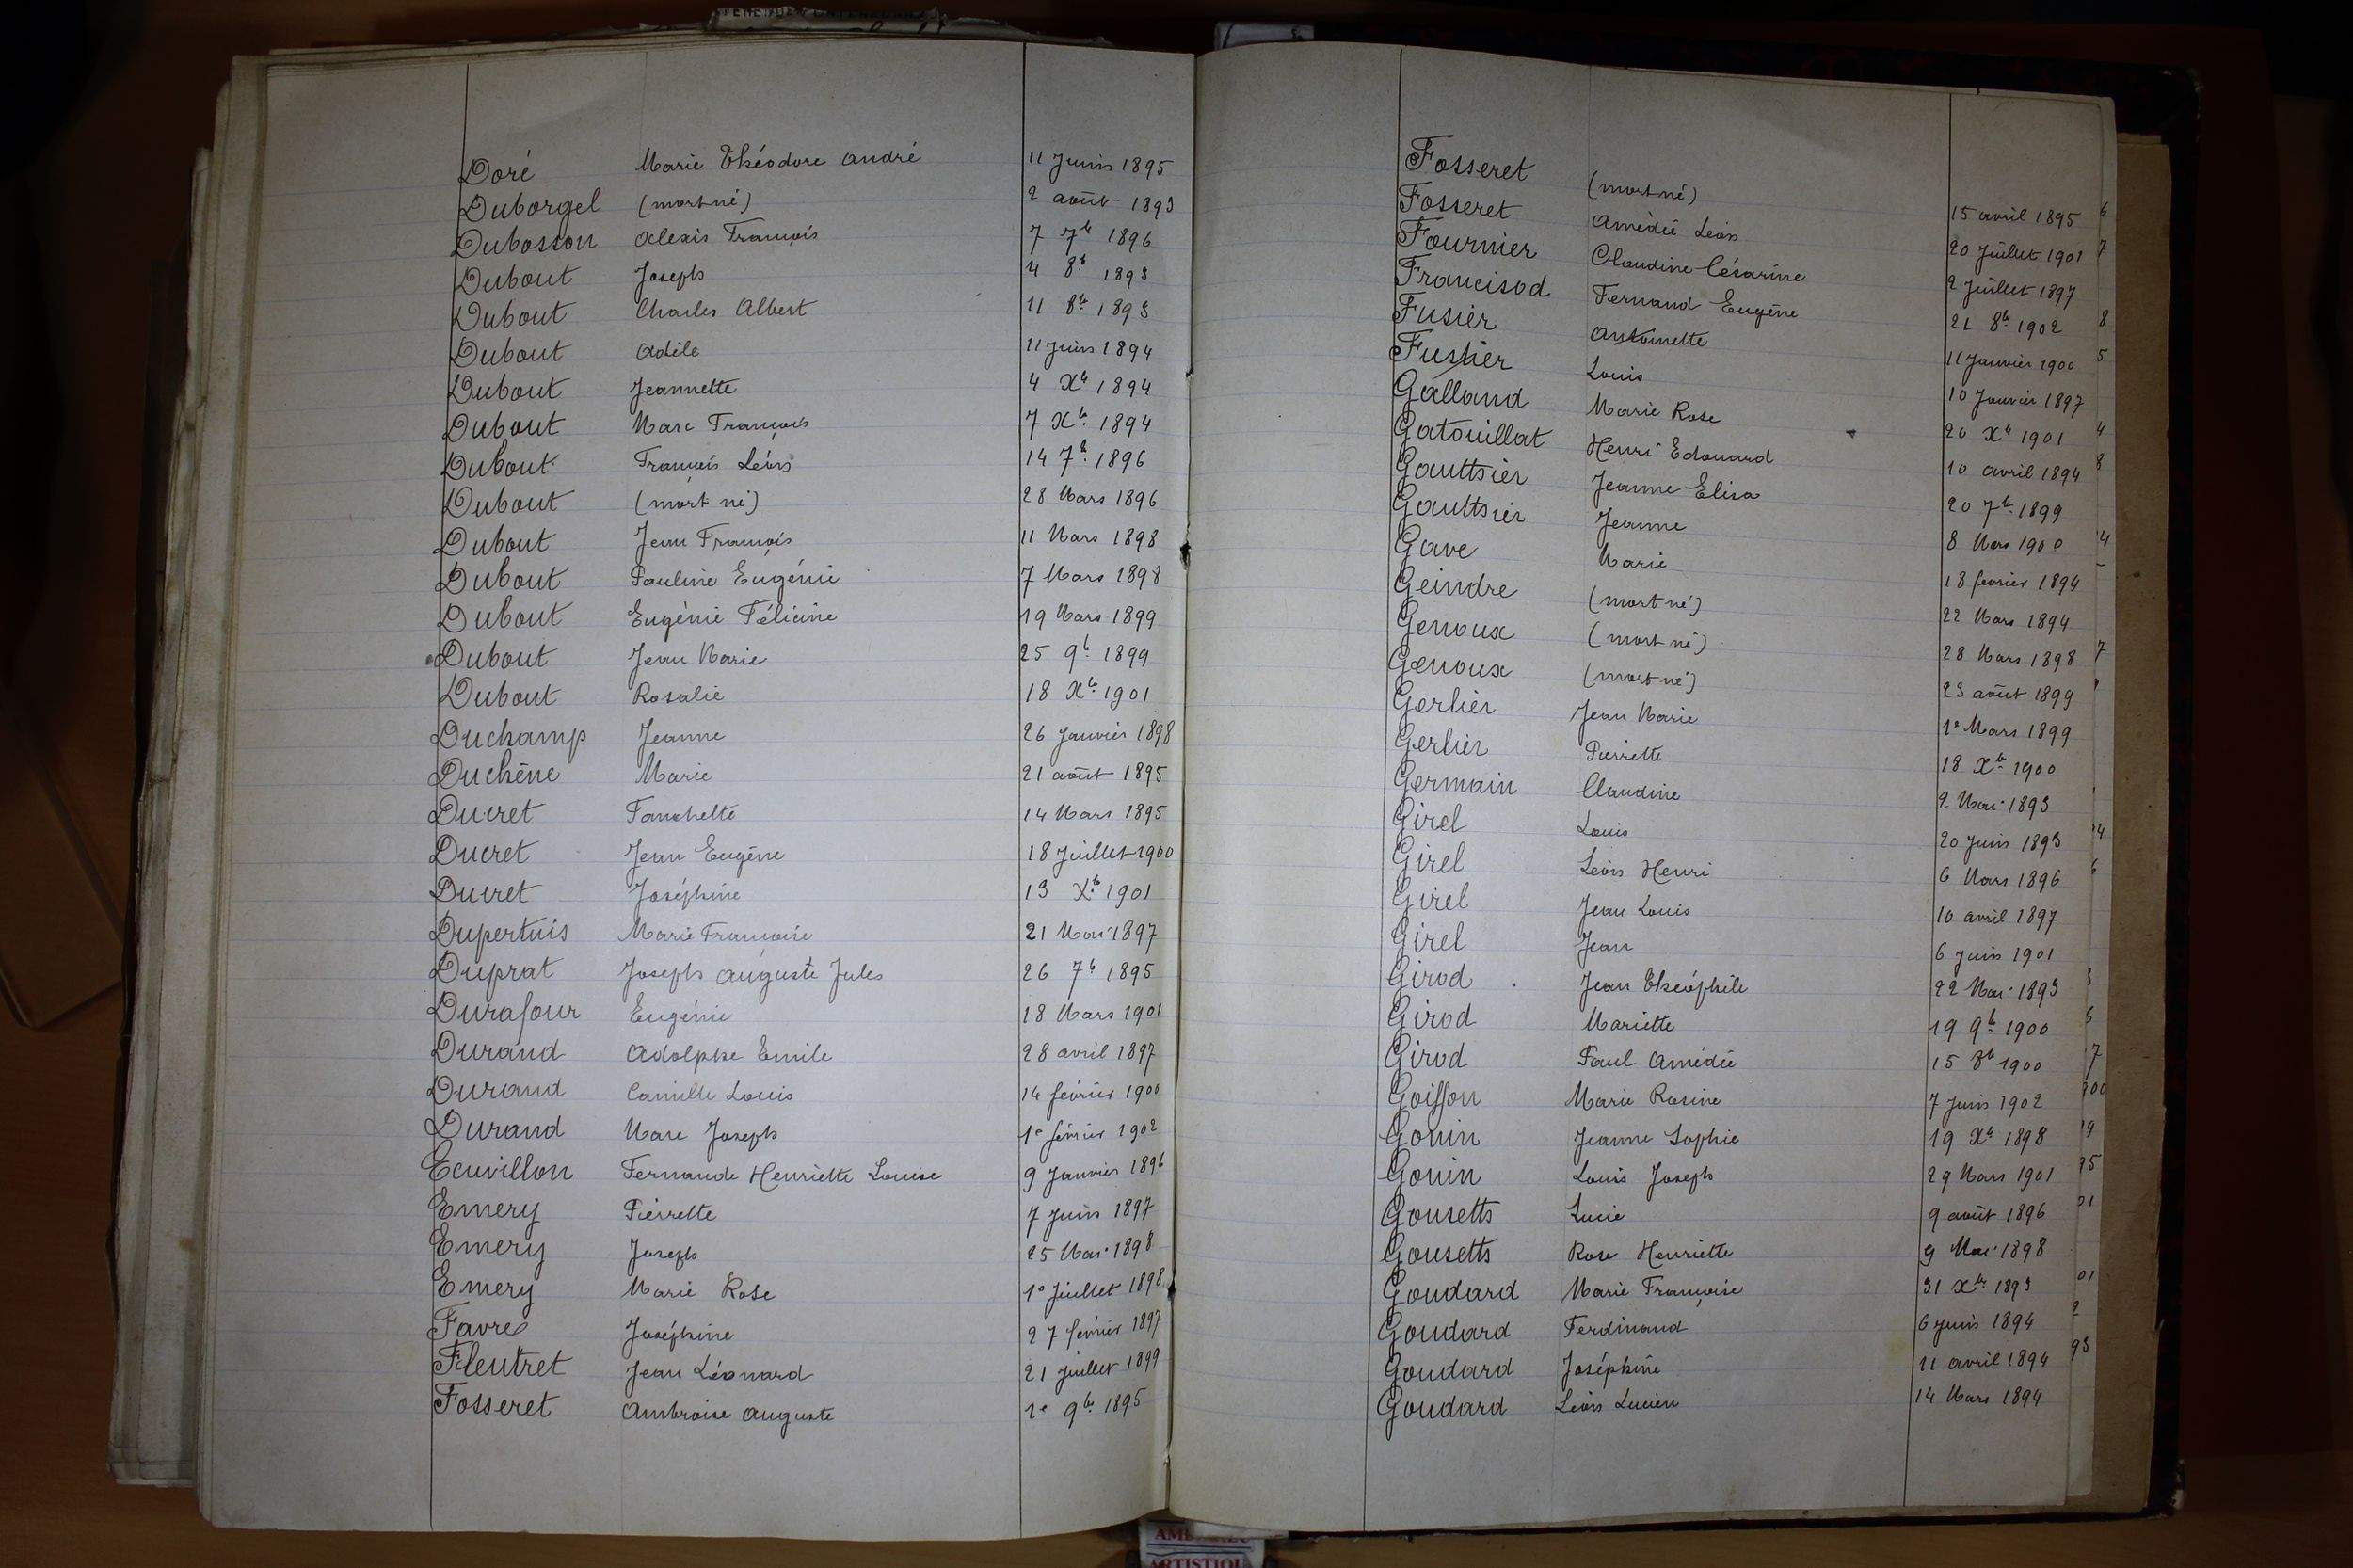 Doré Marie Théodore André 11 Juin 1895
Duborgel (mort né) 2 août 1893
Dubosson Alexis François 7 7bre 1896
Dubout Joseph 4 8bre 1893
Dubout Charles Albert 11 8bre 1893
Dubout Adèle 11 Juin 1894
Dubout Jeannette 4 Xbre 1894
Dubout Marc François 7 Xbre 1894
Dubout François Léon 14 7bre 1896
Dubout (mort né) 28 Mars 1896
Dubout Jean François 11 Mars 1898
Dubout Pauline Eugénie 7 Mars 1898
Dubout Eugénie Félicine 19 Mars 1899
Dubout Jean Marie 25 9bre 1899
Dubout Rosalie 18 Xbre 1901
Duchamp Jeanne 26 Janvier 1898
Duchêne Marie 21 août 1895
Ducret Fanchette 14 Mars 1895
Ducret Jean Eugène 18 Juillet 1900
Ducret Joséphine 13 Xbre 1901
Dupertuis Marie Françoise 21 Mai 1897
Duprat Joseph Auguste Jules 26 7bre 1895
Durafour Eugénie 18 Mars 1901
Durand Adolphe Emile 28 avril 1897
Durand Camille Louis 14 février 1900
Durand Marc Joseph 1e février 1902
Ecuvillon Fernande Henriette Louise 9 Janvier 1896
Emery Pierrette 7 Juin 1897
Emery Joseph 25 Mai 1898
Emery Marie Rose 1e Juillet 1898
Favre Joséphine 27 février 1897
Fleutret Jean Léonard 21 Juillet 1899
Fosseret Ambroise Auguste 1e 9bre 1895
Fosseret (mort né) 15 avril 1895
Fosseret Amédée Léon 20 Juillet 1901
Fournier Claudine Césarine 2 Juillet 1897
Francisod Fernand Eugène 21 8bre 1902
Fusier Antoinette 11 Janvier 1900
Fusier Louis 10 Janvier 1897
Galland Marie Rose 20 Xbre 1901
Gatouillat Henri Edouard 10 avril 1894
Gautthier Jeanne Elisa 20 7bre 1899
Gautthier Jeanne 8 Mars 1900
Gave Marie 18 février 1894
Geindre (mort né) 22 Mars 1894
Genoux (mort né) 28 Mars 1898
Genoux (mort né) 23 août 1899
Gerlier Jean Marie 1e Mars 1899
Gerlier Pierrette 18 Xbre 1900
Germain Claudine 2 Mai 1893
Girel Louis 20 Juin 1893
Girel Léon Henri 6 Mars 1896
Girel Jean Louis 10 avril 1897
Girel Jean 6 Juin 1901
Girod Jean Théophile 22 Mai 1893
Girod Mariette 19 9bre 1900
Girod Paul Amédée 15 8bre 1900
Goiffon Marie Rosine 7 Juin 1902
Gonin Jeanne Sophie 19 Xbre 1898
Gonin Louis Joseph 29 Mars 1901
Gonseth Lucie 9 août 1896
Gonseth Rose Henriette 9 Mai 1898
Goudard Marie Françoise 31 Xbre 1893
Goudard Ferdinand 6 Juin 1894
Goudard Joséphine 11 avril 1894
Goudard Léon Lucien 14 Mars 1894